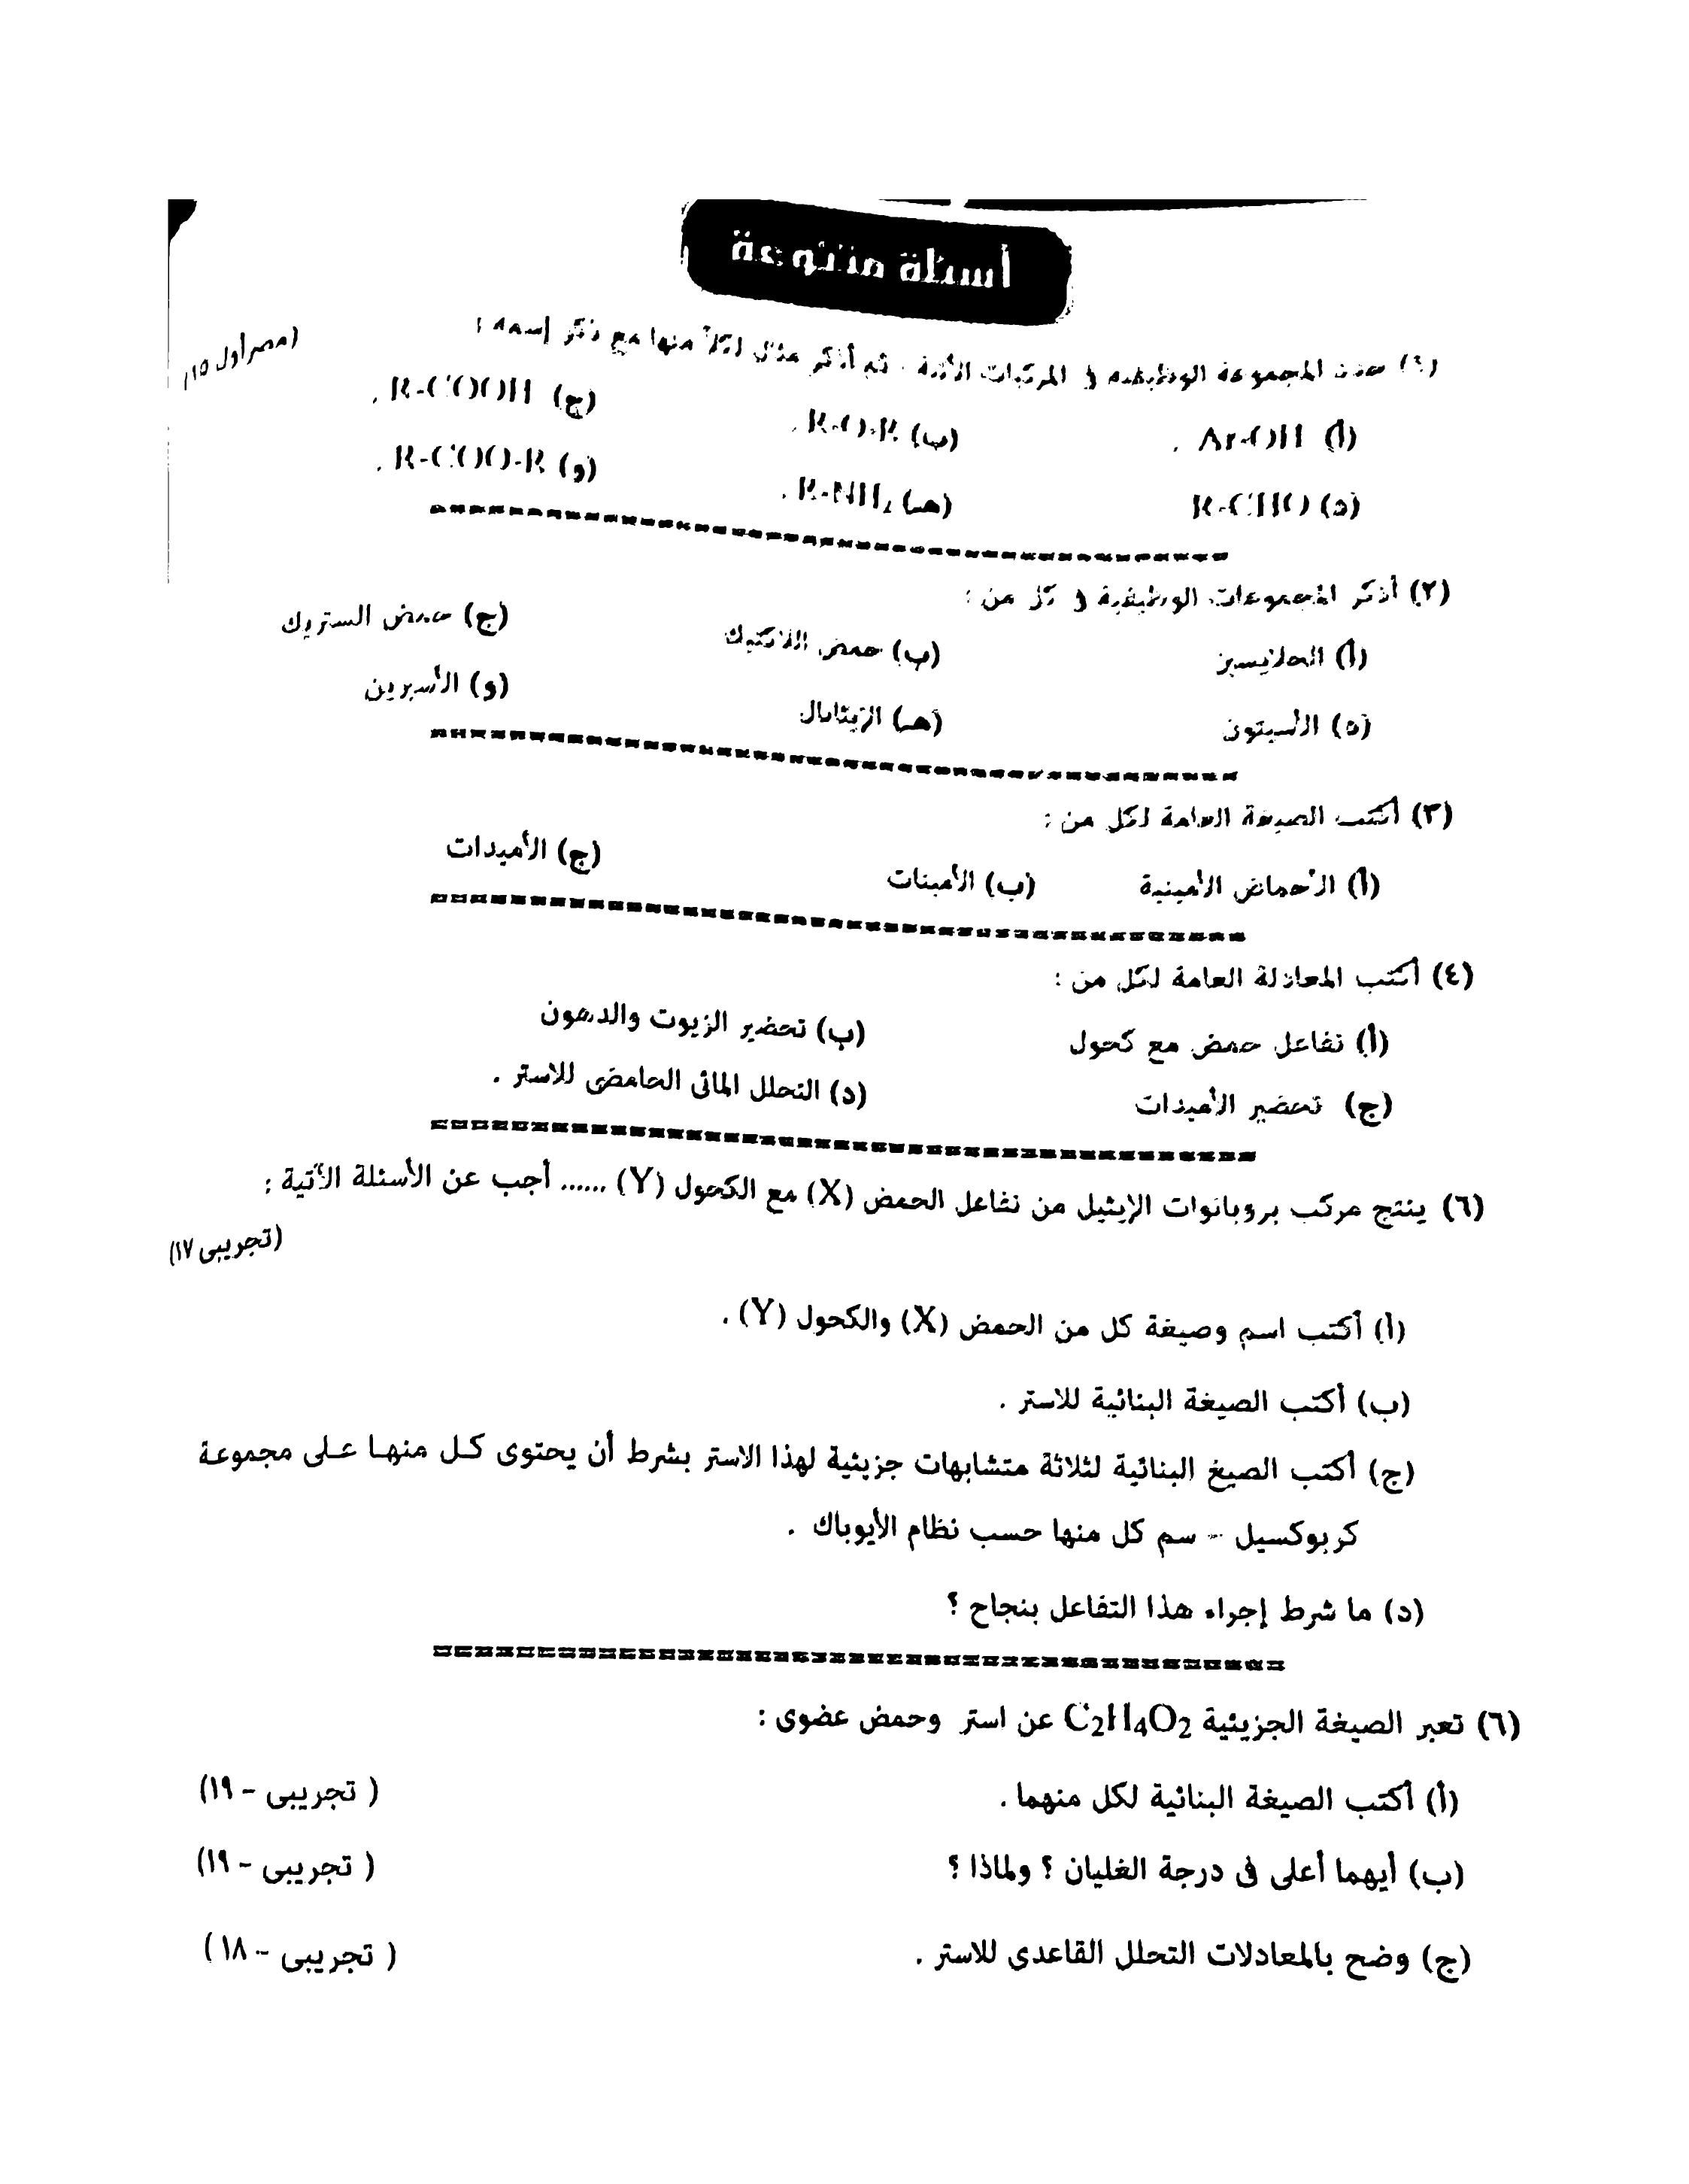 أسئلة متنوعة
(١) حدد المجموعة الوظيفية فى المركبات الآتية . ثم أذكر مثال لكلاً منها مع ذكر إسمه : (مصر أول ١٥)
(أ) Ar-OH . (ب) R-O-R . (ج) R-COOH .
(د) R-CHO (هـ) R-NH₂ . (و) R-COO-R .
(٢) أذكر المجموعات الوظيفية فى كل من :
(أ) الجلايسين (ب) حمض اللاكتيك (ج) حمض الستريك
(د) الأسيتون (هـ) الإيثانال (و) الأسبرين
(٣) أكتب الصيغة العامة لكل من :
(أ) الأحماض الأمينية (ب) الأمينات (ج) الأميدات
(٤) أكتب المعادلة العامة لكل من :
(أ) تفاعل حمض مع كحول (ب) تحضير الزيوت والدهون
(ج) تحضير الأميدات (د) التحلل المائى الحامضى للاستر .
(٦) ينتج مركب بروبانوات الإيثيل من تفاعل الحمض (X) مع الكحول (Y) ...... أجب عن الأسئلة الآتية :
(تجريبى ١٧)
(أ) أكتب اسم وصيغة كل من الحمض (X) والكحول (Y) .
(ب) أكتب الصيغة البنائية للاستر .
(ج) أكتب الصيغ البنائية لثلاثة متشابهات جزيئية لهذا الاستر بشرط أن يحتوى كل منها على مجموعة
كربوكسيل - سم كل منها حسب نظام الأيوباك .
(د) ما شرط إجراء هذا التفاعل بنجاح ؟
(٦) تعبر الصيغة الجزيئية C₂H₄O₂ عن استر وحمض عضوى :
(أ) أكتب الصيغة البنائية لكل منهما . ( تجريبى - ١٩)
(ب) أيهما أعلى فى درجة الغليان ؟ ولماذا ؟ ( تجريبى - ١٩)
(ج) وضح بالمعادلات التحلل القاعدى للاستر . ( تجريبى - ١٨ )